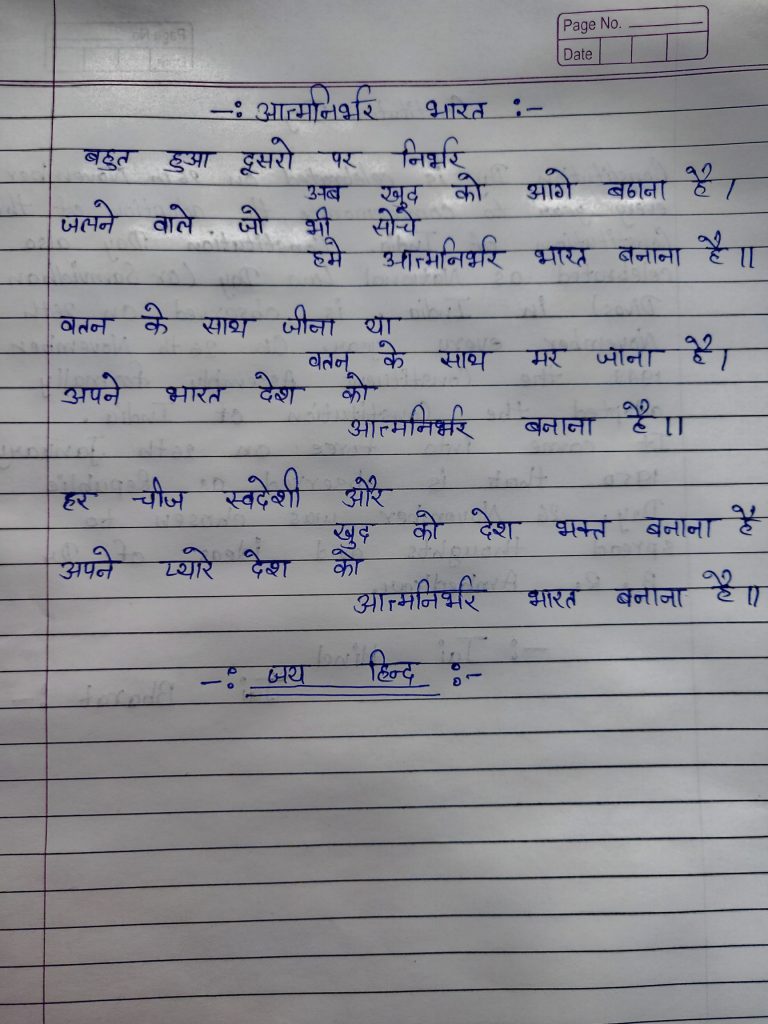 Page No.
Date
-: आत्मनिर्भर भारत :-
बहुत हुआ दूसरो पर निर्भर
अब खुद को आगे बढाना है।
जलने वाले जो भी सोचे
हमे आत्मनिर्भर भारत बनाना है॥
वतन के साथ जीना था
वतन के साथ मर जाना है।
अपने भारत देश को
आत्मनिर्भर बनाना है॥
हर चीज स्वदेशी और
खुद को देश भक्त बनाना है
अपने प्यारे देश को
आत्मनिर्भर भारत बनाना है॥
-: जय हिन्द :-